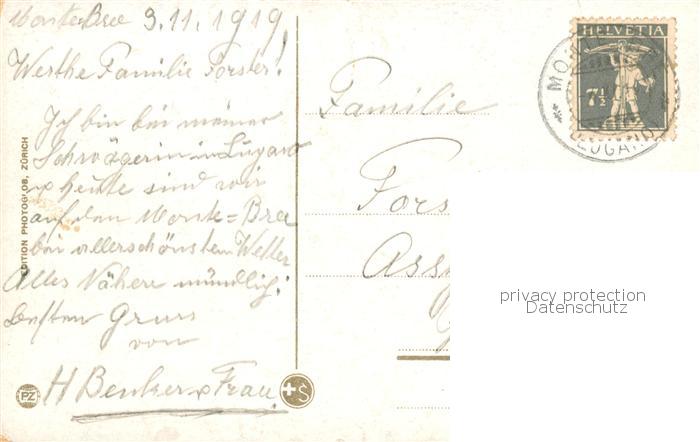 Monte Bre 3.11.1919
Werthe Familie Forster!
Ich bin bei meiner
Schwägerin in Lugano
& heute sind wir
auf den Monte=Bre
bei allerschönstem Wetter
Alles Nähere mündlich.
Besten Gruss
von
H Benker & Frau
EDITION PHOTOGLOB, ZÜRICH
PZ
S
HELVETIA
7½
MONTE
LUGANO
Familie
Fors
Ass
privacy protection
Datenschutz